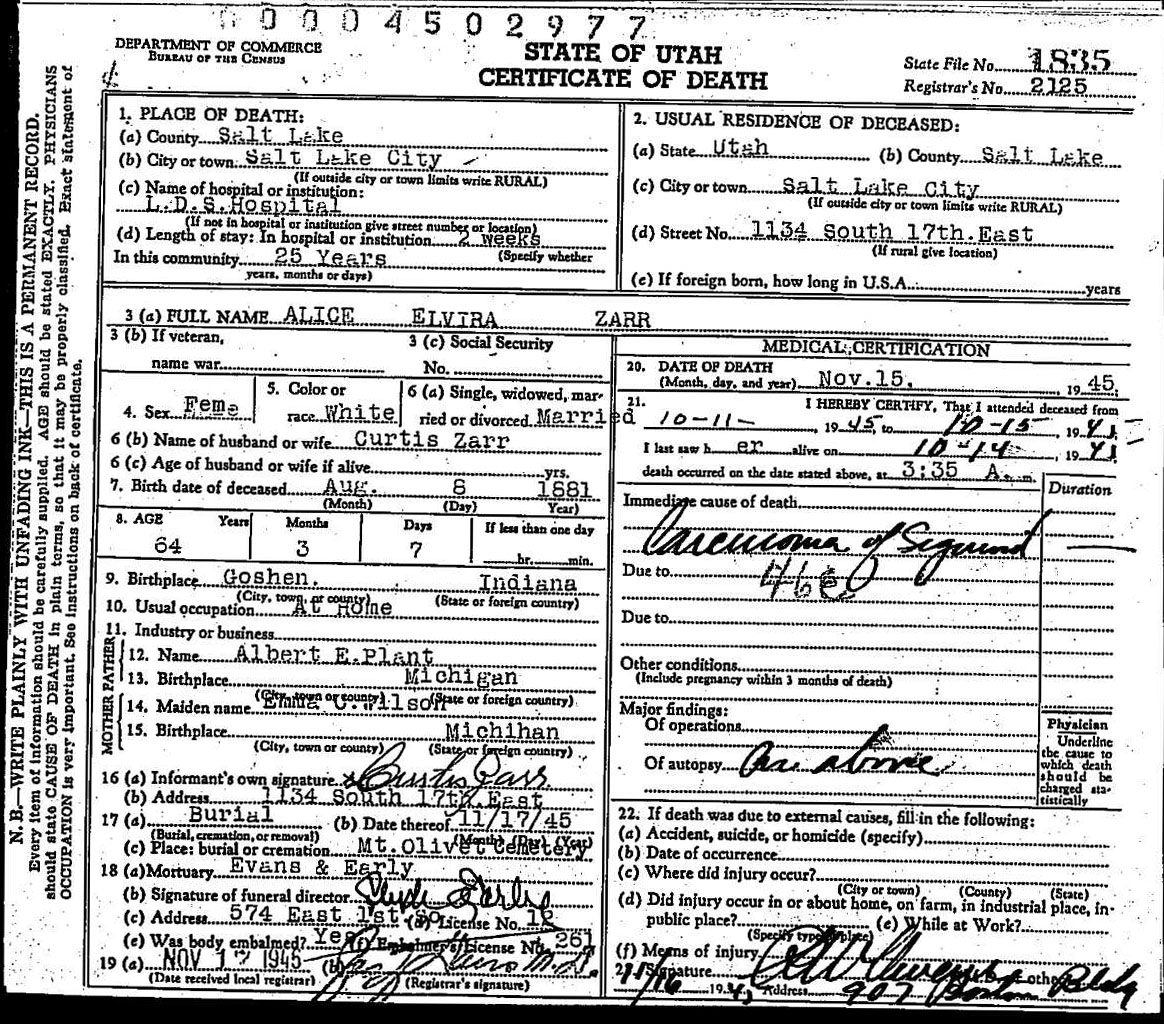 00004502977
DEPARTMENT OF COMMERCE
BUREAU OF THE CENSUS
STATE OF UTAH
CERTIFICATE OF DEATH
State File No. 1835
Registrar's No. 2125
N. B.—WRITE PLAINLY WITH UNFADING INK—THIS IS A PERMANENT RECORD.
Every item of information should be carefully supplied. AGE should be stated EXACTLY. PHYSICIANS
should state CAUSE OF DEATH in plain terms, so that it may be properly classified. Exact statement of
OCCUPATION is very important. See instructions on back of certificate.
1. PLACE OF DEATH:
(a) County Salt Lake
(b) City or town Salt Lake City
(If outside city or town limits write RURAL)
(c) Name of hospital or institution:
L.D.S.Hospital
(If not in hospital or institution give street number or location)
(d) Length of stay: In hospital or institution 2 weeks
In this community 25 Years (Specify whether
years, months or days)
2. USUAL RESIDENCE OF DECEASED:
(a) State Utah (b) County Salt Lake
(c) City or town Salt Lake City
(If outside city or town limits write RURAL)
(d) Street No. 1134 South 17th.East
(If rural give location)
(e) If foreign born, how long in U.S.A. years
3 (a) FULL NAME ALICE ELVIRA ZARR
3 (b) If veteran,
name war
3 (c) Social Security
No.
4. Sex Feme
5. Color or
race White
6 (a) Single, widowed, mar-
ried or divorced Married
6 (b) Name of husband or wife Curtis Zarr
6 (c) Age of husband or wife if alive yrs.
7. Birth date of deceased Aug. 8 1881
(Month) (Day) Year)
8. AGE Years Months Days If less than one day
64 3 7 hr. min.
9. Birthplace Goshen. Indiana
(City, town, or county) (State or foreign country)
10. Usual occupation At Home
11. Industry or business
FATHER
12. Name Albert E.Plant
13. Birthplace Michigan
(City, town or county) (State or foreign country)
MOTHER
14. Maiden name Emma C.Wilson
15. Birthplace Michihan
(City, town or county) (State or foreign country)
16 (a) Informant's own signature x Curtis Zarr
(b) Address 1134 South 17th.East
17 (a) Burial (b) Date thereof 11/17/45
(Burial, cremation, or removal) (Month) (Day) (Year)
(c) Place: burial or cremation Mt.Olivet Cemetery
18 (a) Mortuary Evans & Early
(b) Signature of funeral director Clyde Early
(c) Address 574 East 1st So (d) License No. 16
(e) Was body embalmed? Yes (f) Embalmer's License No. 261
19 (a) NOV 17 1945 (b)
(Date received local registrar) (Registrar's signature)
MEDICAL CERTIFICATION
20. DATE OF DEATH
(Month, day, and year) Nov.15. 1945
21. I HEREBY CERTIFY, That I attended deceased from
10-11- 1945, to 10-15, 1945
I last saw her alive on 10-14 1945
death occurred on the date stated above, at 3:35 A. m.
Duration
Immediate cause of death
Carcinoma of Sigmoid
Due to 46e
Due to
Other conditions
(Include pregnancy within 3 months of death)
Major findings:
Of operations
Of autopsy as above
Physician
Underline
the cause to
which death
should be
charged sta-
tistically
22. If death was due to external causes, fill in the following:
(a) Accident, suicide, or homicide (specify)
(b) Date of occurrence
(c) Where did injury occur?
(City or town) (County) (State)
(d) Did injury occur in or about home, on farm, in industrial place, in-
public place? (e) While at Work?
(Specify type of place)
(f) Means of injury
Signature M. D. or other
11/16 1945 Address 907 Boston Bldg